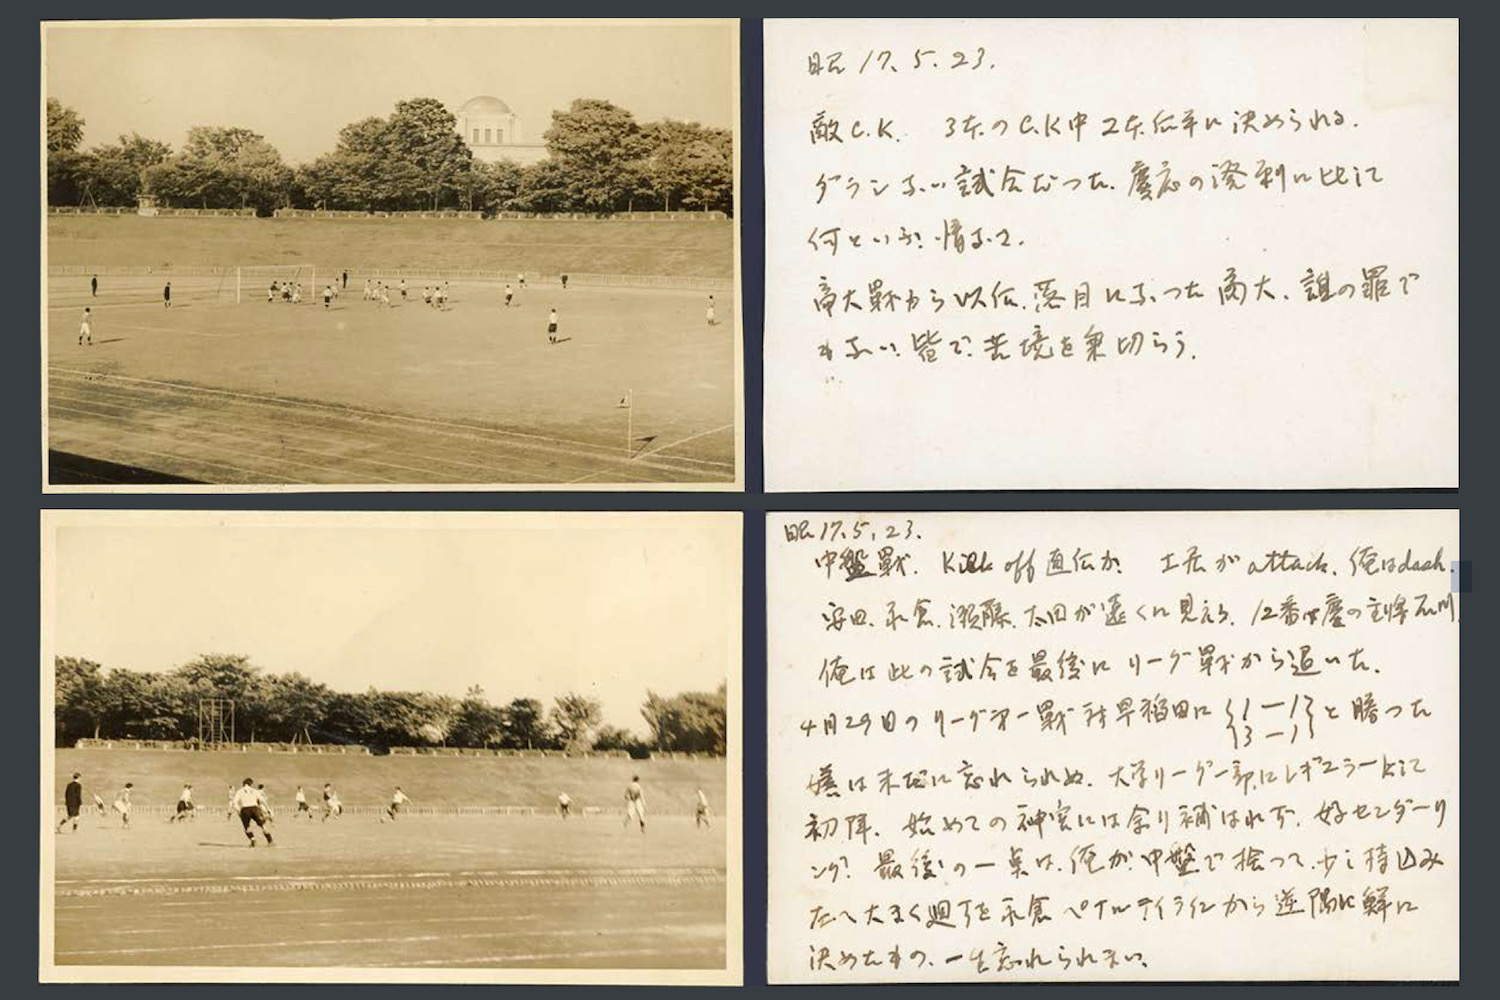 昭17.5.23.
敵C.K. 3本のC.K中2本后半に決められる.
ダラシない試合だつた. 慶応の溌剌に比して
何といふ情ない.
商大. 誰の罪で
もない. 皆で苦境を乗切らう.
昭17.5.23.
中盤戦. Kick off直后か. 土居がattack. 俺はdash.
安田. 永倉. 須藤. 太田が遠くに見える. 12番は慶の主将石川
俺は此の試合を最後にリーグ戦から退いた.
4月29日のリーグ 戦対早稲田に と勝つた
は未だに忘れられぬ. 大学リーグ一部にレギュラーとして
初陣. 始めての神宮には余り 好センターリ
ング! 最後の一点は. 俺が中盤で拾つて. 少し持込み
左へ大きく廻すを永倉ペナルティラインから逆隅に鮮に
決めたもの. 一生忘れられまい.